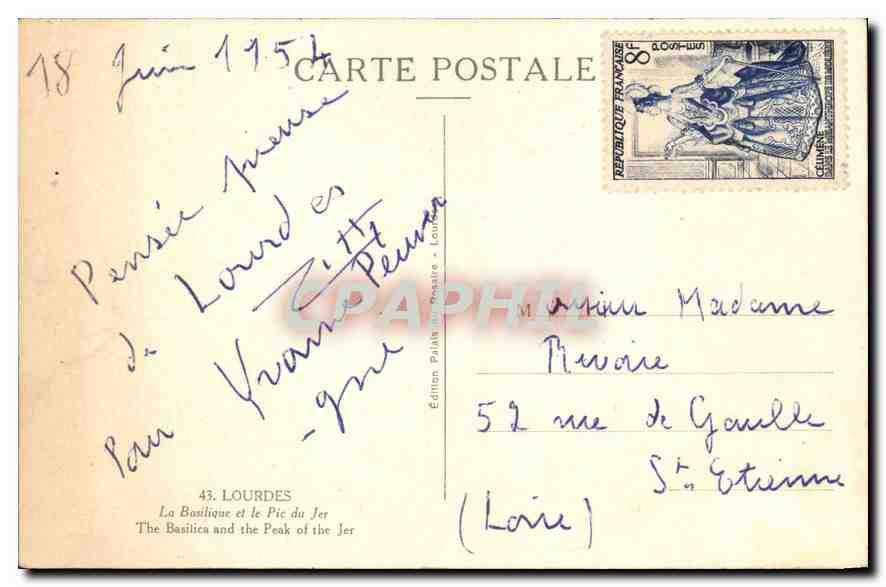 18 Juin 1954
CARTE POSTALE
Pensée pieuse
de Lourdes
Pour Yvonne
43. LOURDES
La Basilique et le Pic du Jer
The Basilica and the Peak of the Jer
Édition Palais du Rosaire - Lourdes
CPAPHIL
RÉPUBLIQUE FRANÇAISE
8F
POSTES
CÉLIMÈNE
Monsieur Madame
Revoire
52 rue de Gaulle
St Etienne
(Loire)